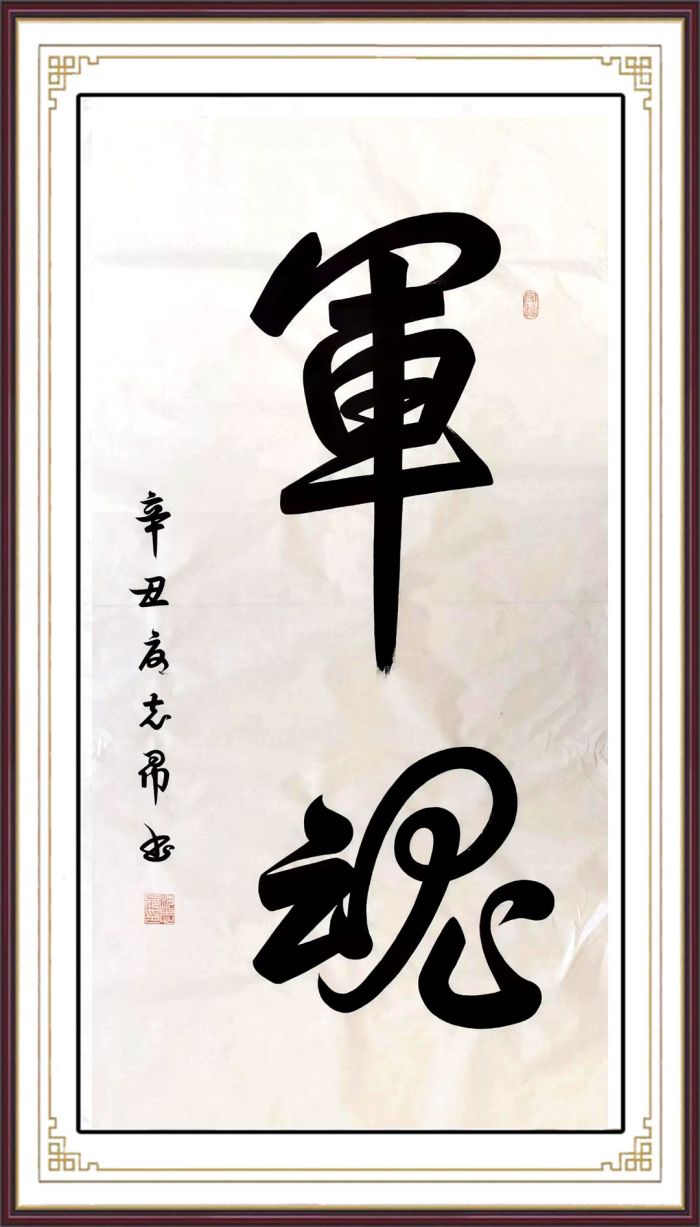 軍魂
辛丑夏志昂书